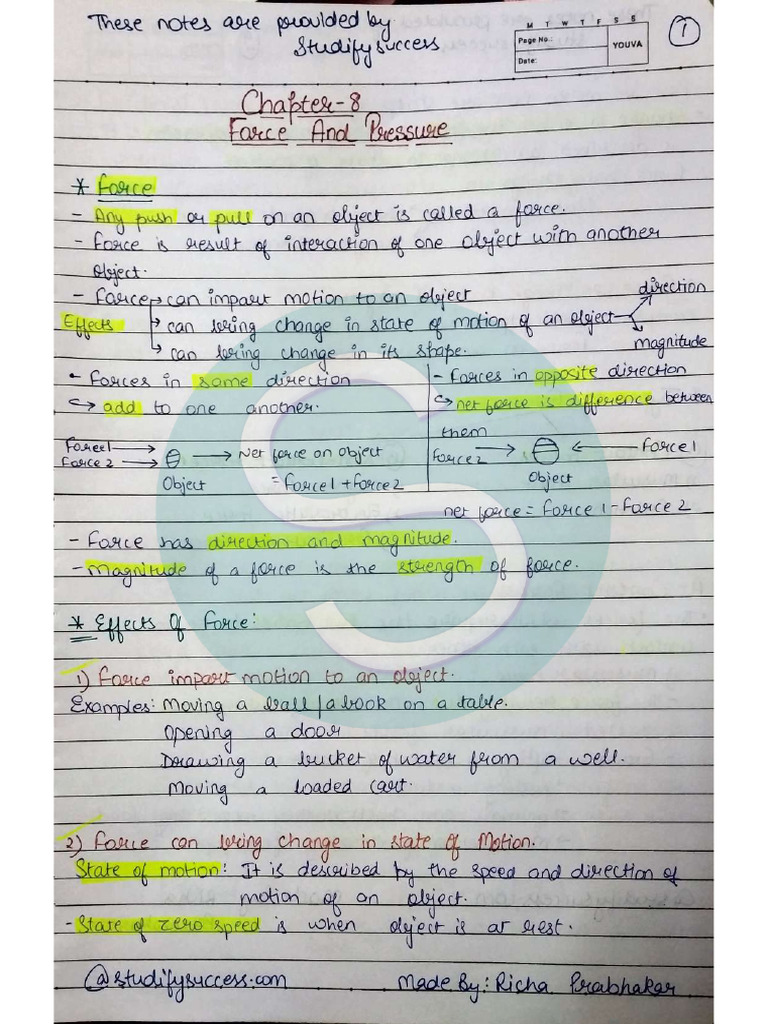 These notes are provided by
Studifysuccess
M T W T F S S
Page No.:
Date:
YOUVA
1
Chapter-8
Force And Pressure
* Force
- Any push or pull on an object is called a force.
- Force is result of interaction of one object with another
object.
- Force → can impart motion to an object
Effects → can bring change in state of motion of an object → direction
magnitude
→ can bring change in its shape.
- Forces in same direction
↪ add to one another.
Force1 →
Force 2 →
→ Net force on object
Object
= Force1 + Force 2
- Forces in opposite direction
↪ net force is difference between
them
Force2 →
← Force1
Object
net force = Force 1 - Force 2
- Force has direction and magnitude.
- Magnitude of a force is the strength of force.
* Effects Of Force:
1) Force impart motion to an object.
Examples: Moving a ball / a book on a table.
Opening a door
Drawing a bucket of water from a well.
Moving a loaded cart.
2) Force can bring change in state of Motion.
State of motion: It is described by the speed and direction of
motion of an object.
- State of zero speed is when object is at rest.
@studifysuccess.com
Made By: Richa Prabhakar